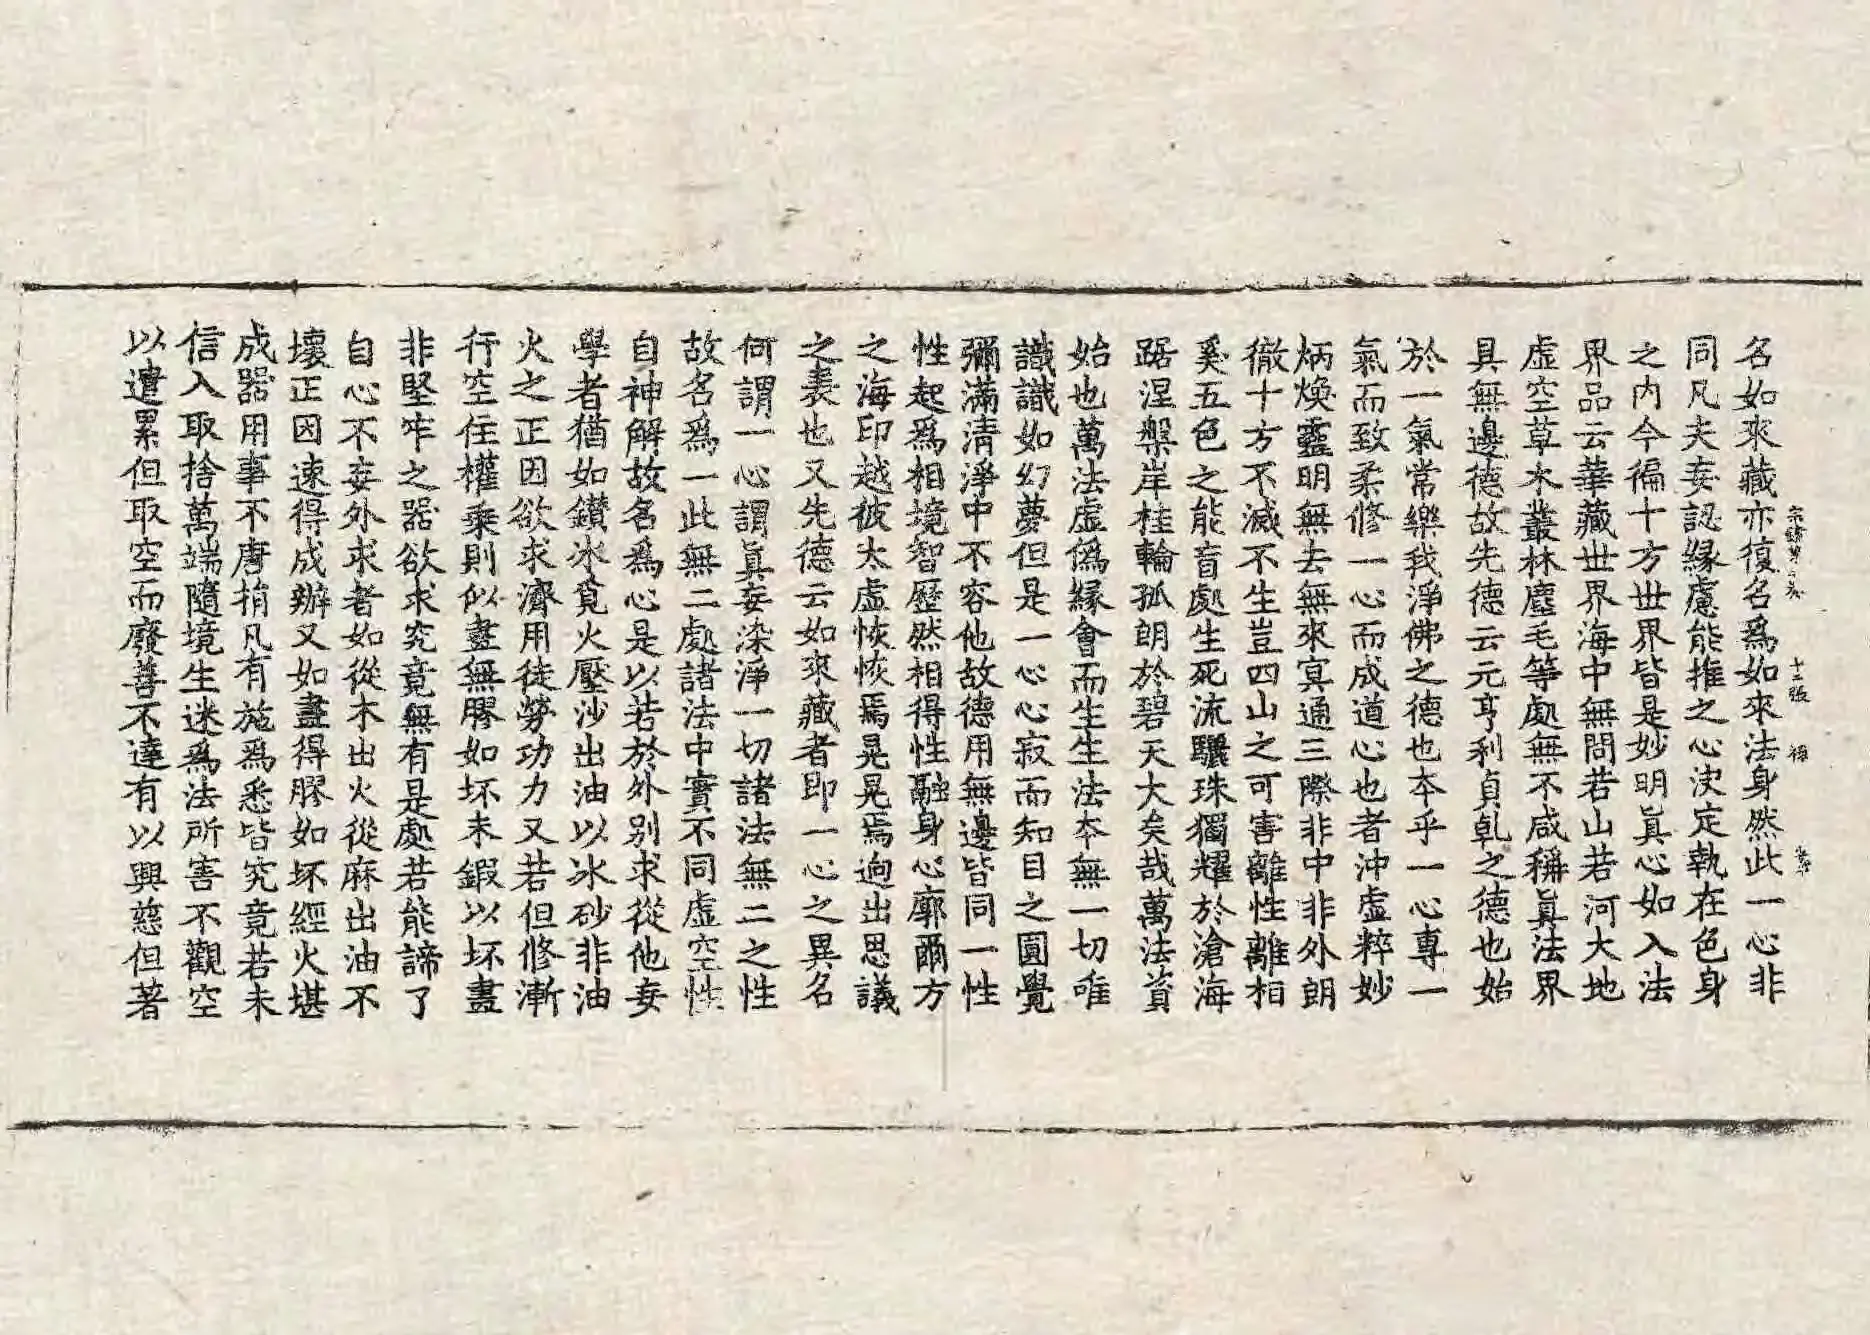 宗鏡第二卷 十二張 祿
名如來藏亦復名爲如來法身然此一心非
同凡夫妄認緣慮能推之心決定執在色身
之內今徧十方世界皆是妙明眞心如入法
界品云華藏世界海中無問若山若河大地
虛空草木叢林塵毛等處無不咸稱眞法界
具無邊德故先德云元亨利貞乹之德也始
於一氣常樂我淨佛之德也本乎一心專一
氣而致柔修一心而成道心也者沖虛粹妙
炳煥靈明無去無來冥通三際非中非外朗
徹十方不滅不生豈四山之可害離性離相
奚五色之能盲處生死流驪珠獨耀於滄海
踞涅槃岸桂輪孤朗於碧天大矣哉萬法資
始也萬法虛僞緣會而生生法本無一切唯
識識如幻夢但是一心心寂而知目之圓覺
彌滿淸淨中不容他故德用無邊皆同一性
性起爲相境智歷然相得性融身心廓爾方
之海印越彼太虛恢恢焉晃晃焉逈出思議
之表也又先德云如來藏者即一心之異名
何謂一心謂眞妄染淨一切諸法無二之性
故名爲一此無二處諸法中實不同虛空性
自神解故名爲心是以若於外別求從他妄
學者猶如鑽冰覓火壓沙出油以冰砂非油
火之正因欲求濟用徒勞功力又若但修漸
行空住權乘則似畫無膠如坏未鍛以坏畫
非堅牢之器欲求究竟無有是處若能諦了
自心不妄外求者如從木出火從麻出油不
壞正因速得成辦又如畫得膠如坏經火堪
成器用事不唐捐凡有施爲悉皆究竟若未
信入取捨萬端隨境生迷爲法所害不觀空
以遣累但取空而廢善不達有以興慈但著